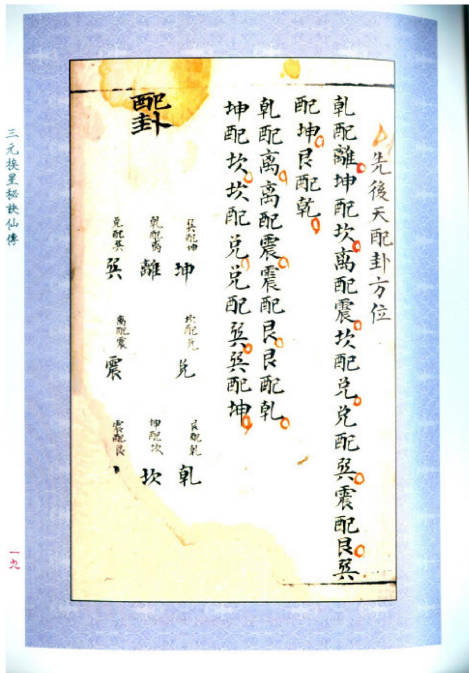 先後天配卦方位
乾配離坤配坎离配震坎配兌兌配巽震配艮巽
配坤艮配乾
乾配离离配震震配艮艮配乾
坤配坎坎配兌兌配巽巽配坤
配卦
巽配坤
坤
坎配兌
兌
艮配乾
乾
乾配離
離
坤配坎
坎
兌配巽
巽
离配震
震
震配艮
三元挨星秘訣仙傳
一九